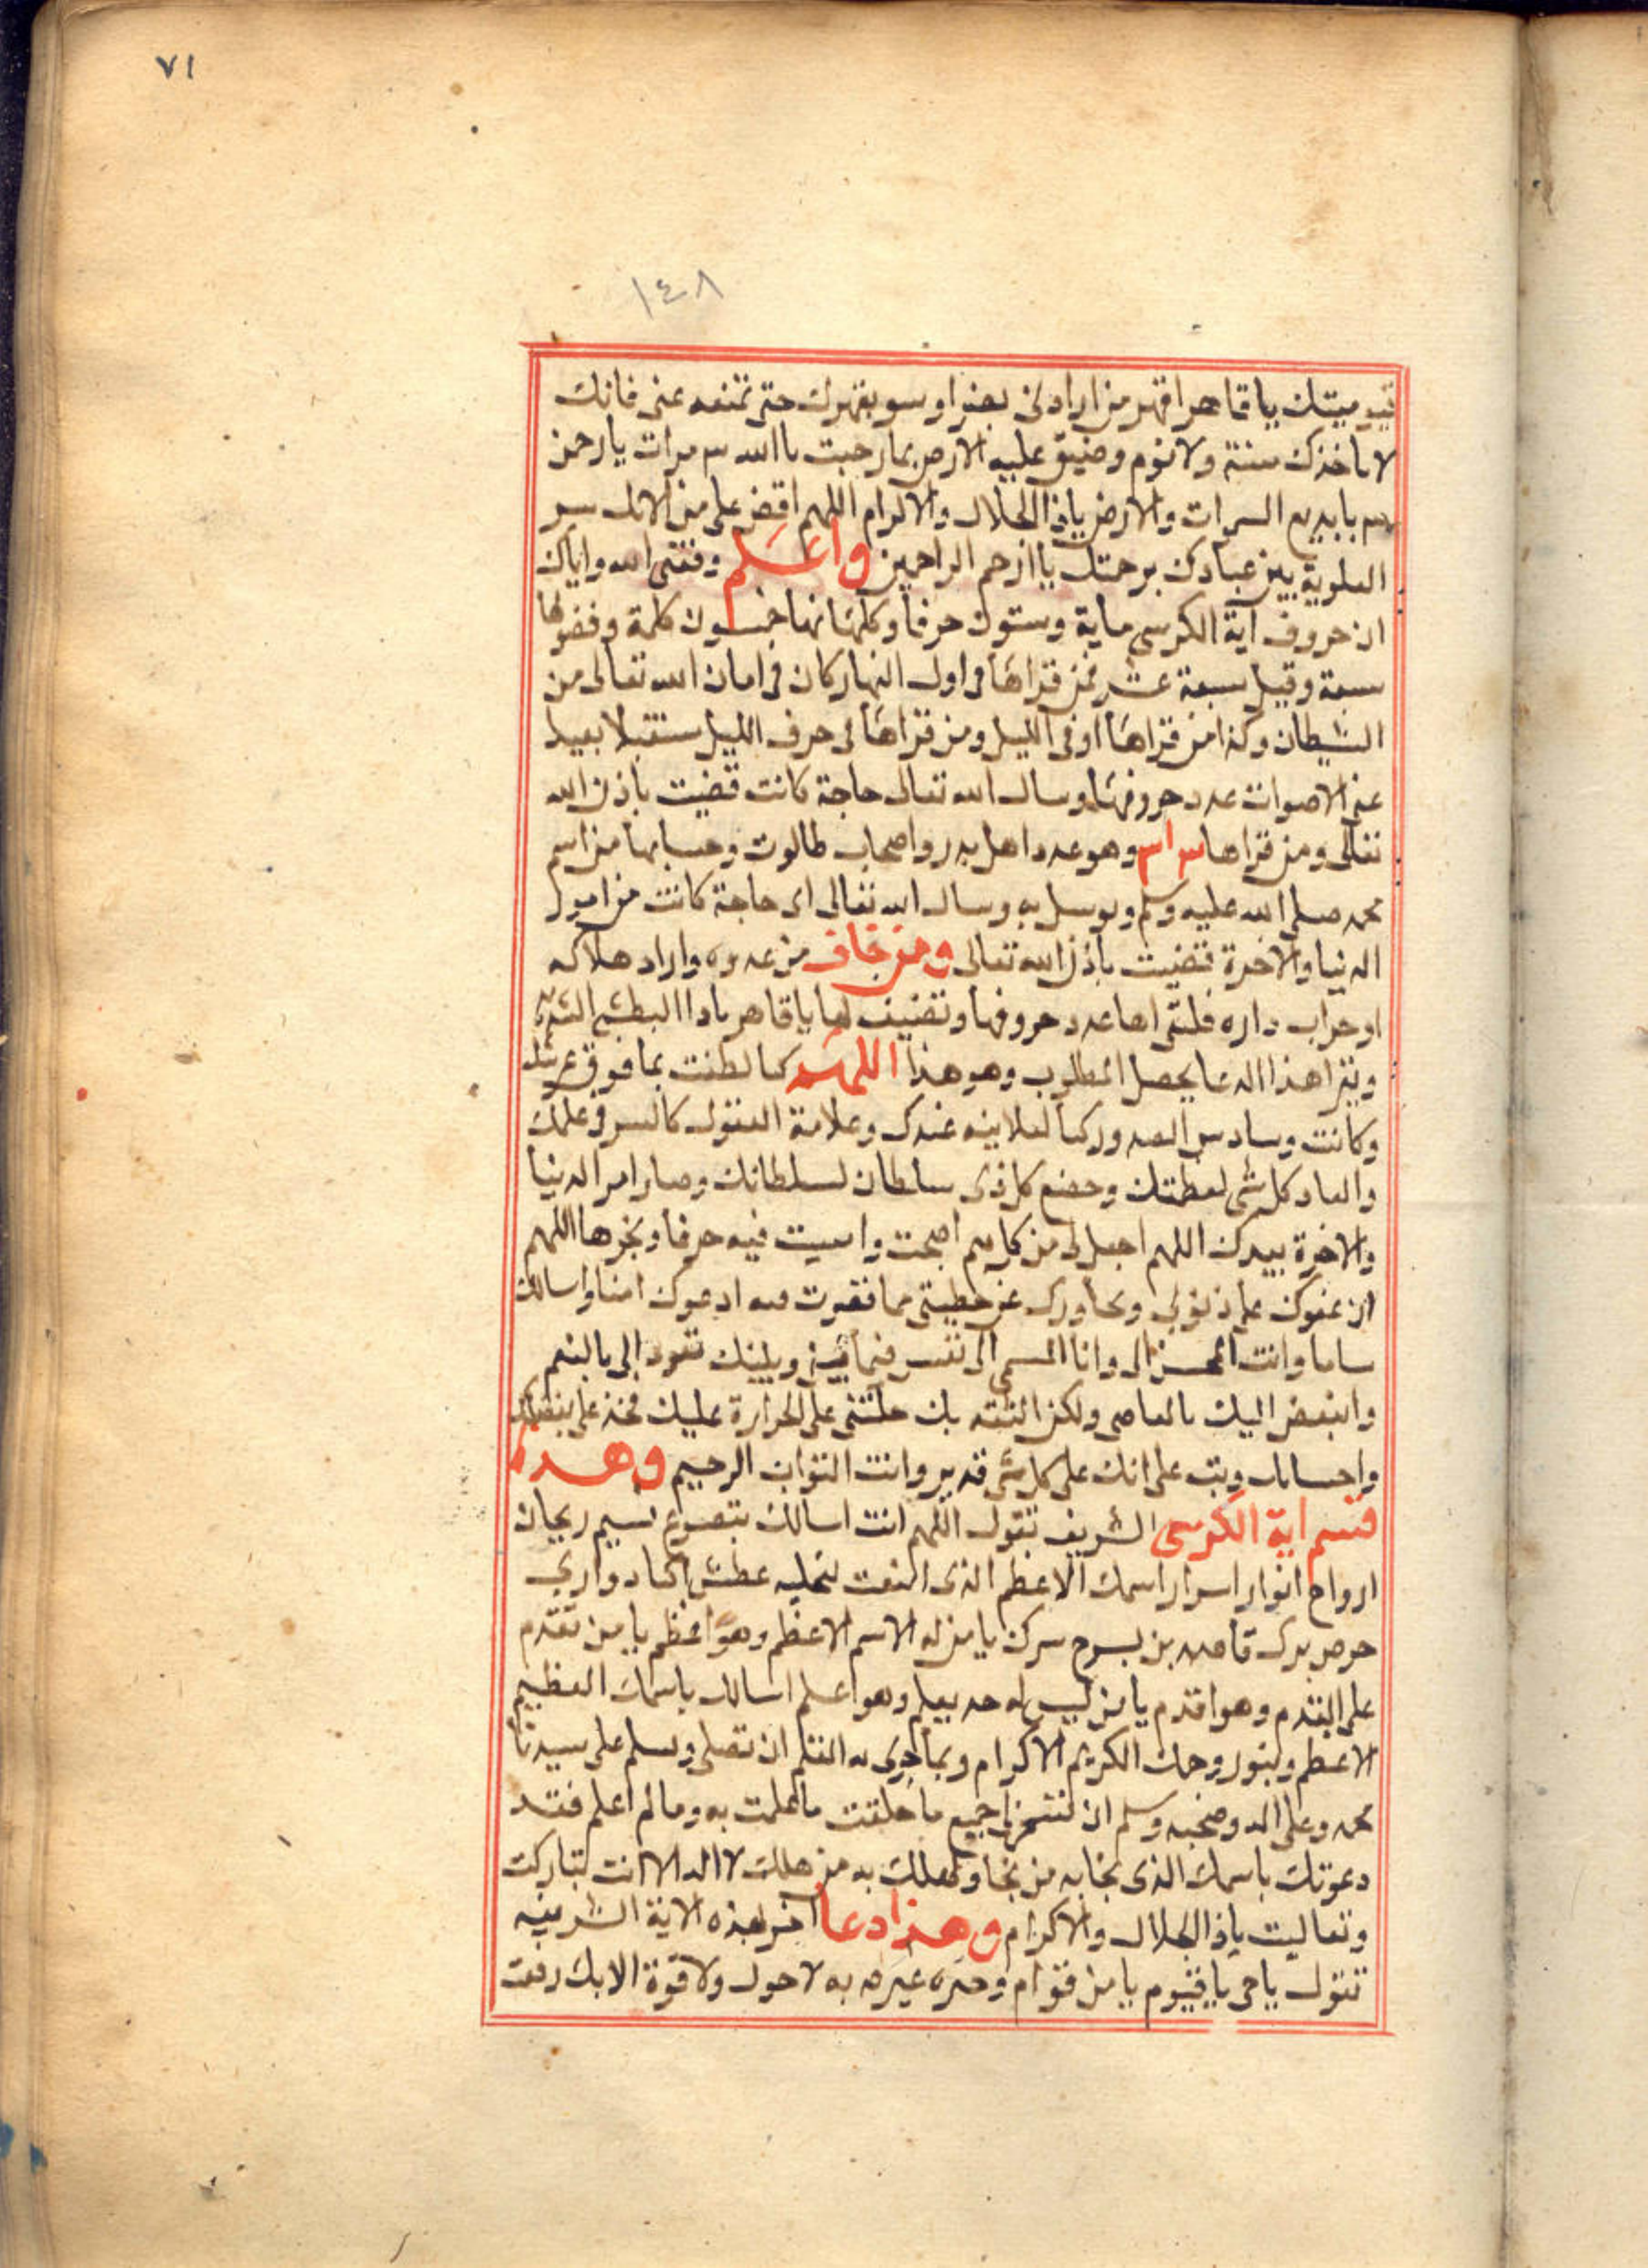 ٧١
١٤٨
قيوميتك يا قاهر اقهر من ارادني بضر او سو بقهرك حتى تمنعه عني فانك
لا تاخذك سنة ولا نوم وضيق عليه الارض بما رحبت يا الله ٣ مرات يا رحمن
يا بديع السموات والارض ياذا الجلال والاكرام اللهم افض علي من
العلوية بين عبادك برحمتك يا ارحم الراحمين واعلم وفقني الله واياك
ان حروف آية الكرسي ماية وستون حرفا وكلماتها خمسون كلمة وفصولها
سبعة وقيل سبعة عشر فمن قراها في اول النهار كان في امان الله تعالى من
الشيطان وكذا من قراها اوفى الليل ومن قراها في جوف الليل مستقبلا بعيدا
عن الاصوات عدد حروفها وسال الله تعالى حاجة كانت قضيت باذن الله
تعالى ومن قراها ٣١٣ وهو عدد اهل بدر واصحاب طالوت وحسابها من اسم
محمد صلى الله عليه وسلم وتوسل به وسال الله تعالى اى حاجة كانت من امور
الدنيا والاخرة قضيت باذن الله تعالى ومن خاف من عدوه واراد هلاكه
او خراب داره فليقراها عدد حروفها وتضيف لها يا قاهر ياذا البطش الشديد
ويقرا هذا الدعا يحصل المطلوب وهو هذا اللهم كما لطفت بما فوق عرشك
وكانت وساوس الصدور كالعلانية عندك وعلامة القول كالسر في علمك
وانقاد كل شى لعظمتك وخضع كل ذى سلطان لسلطانك وصار امر الدنيا
والاخرة بيدك اللهم اجعل لى من كل هم اصبحت وامسيت فيه فرجا ومخرجا اللهم
ان عفوك على ذنوبى وتجاوزك عن خطيتى مما قصرت فيه ادعوك امنا واسالك
وانت المحسن الى وانا المسى الى نفسى فيما بينى وبينك تتودد الى بالنعم
واتبغض اليك بالمعاصى ولكن الثقة بك حملتنى على الجراة عليك فجد على بفضلك
واحسانك وتب على انك على كل شى قدير وانت التواب الرحيم وهذه
قسم اية الكرسى الشريف تقول اللهم انت اسالك بتضوع نسيم ريحان
ارواح انوار اسرار اسمك الاعظم الذى
سرك يا من له الاسم الاعظم وهو اعظم يا من تقدم
على القدم وهو اقدم يا من ليس احد يعلم وهو اعلم اسالك باسمك العظيم
الاعظم وبنور وجهك الكريم الاكرام وبما جرى به القلم ان تصلى وتسلم على سيدنا
محمد وعلى اله وصحبه وسلم ان جميع ما خلقت ما علمت به وما لم اعلم فقد
دعوتك باسمك الذى نجا به من نجا وهلك به من هلك لا اله الا انت تباركت
وتعاليت ياذا الجلال والاكرام وهذا دعا اخر لهذه الاية الشريفه
تقول يا حى يا قيوم يا من قوام وحده غيره به لا حول ولا قوة الا بك رفعت